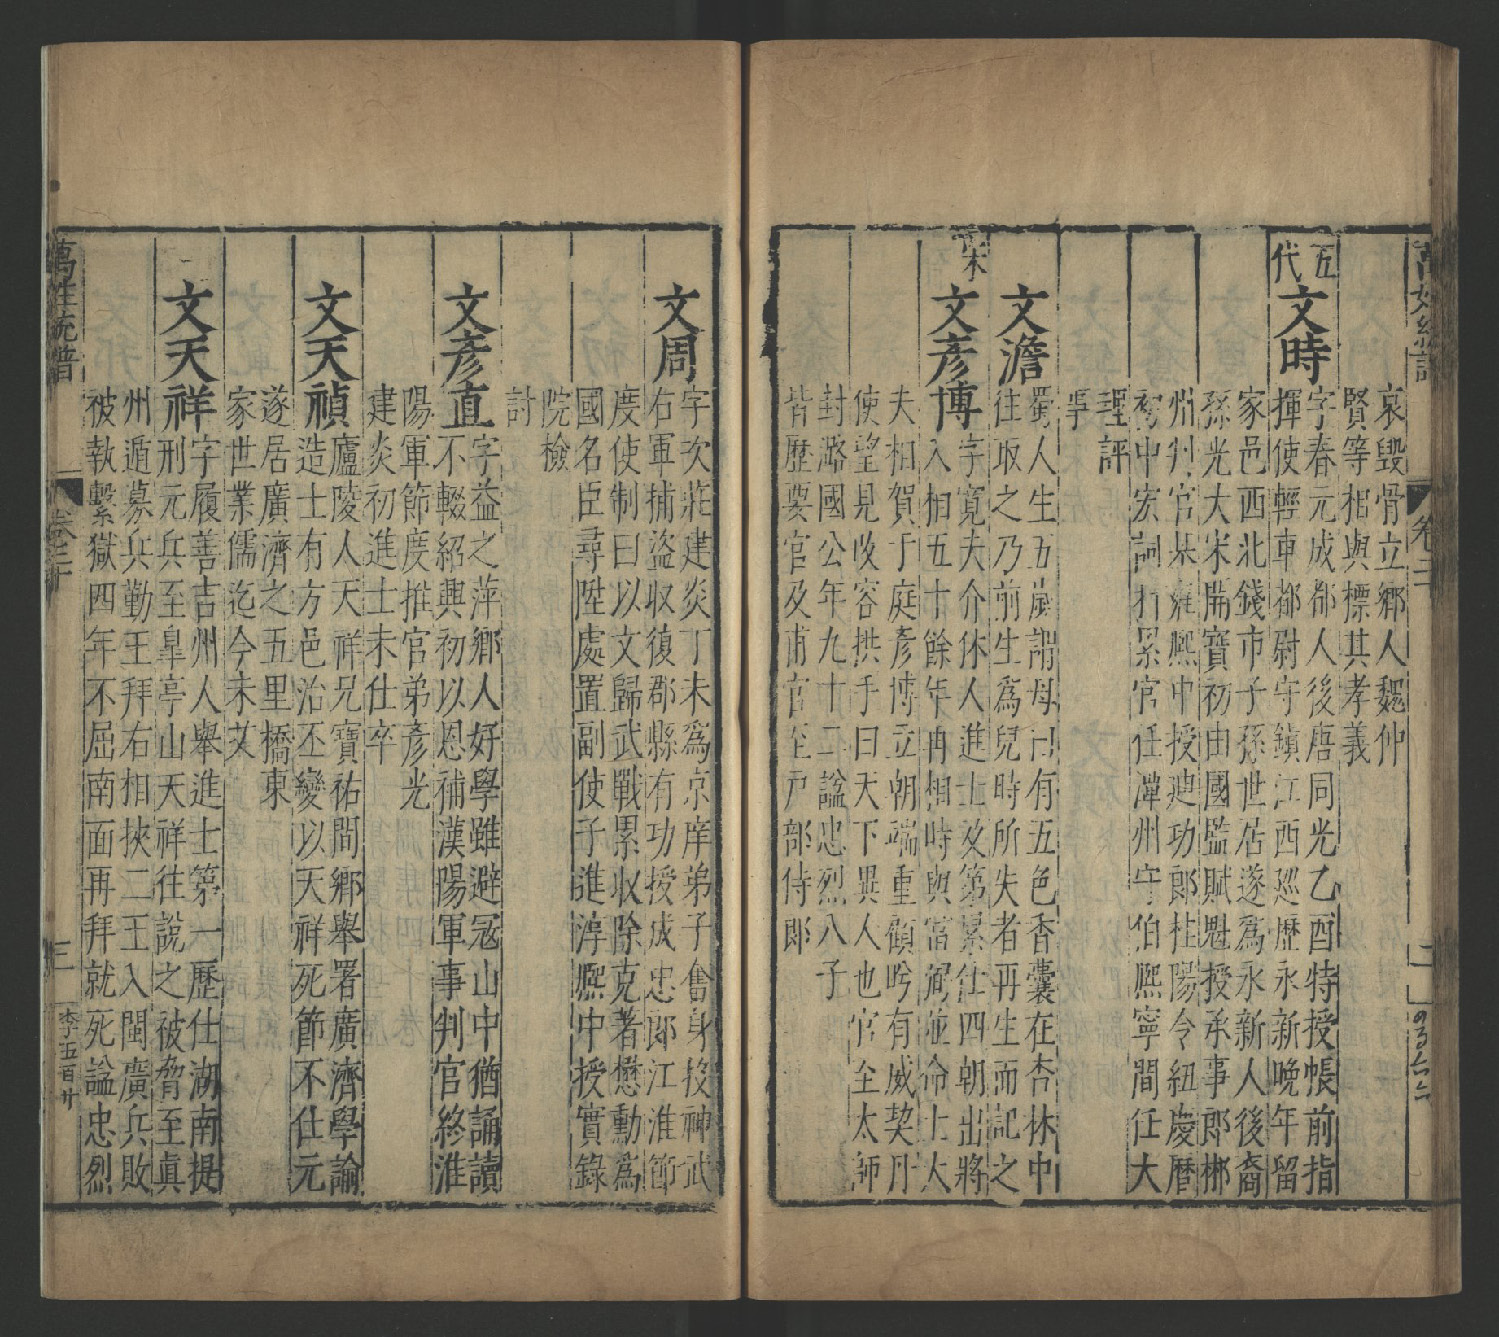 萬姓統譜
卷二十
二
哀毀骨立鄉人魏仲
賢等相與標其孝義
五代
文時
字春元成都人後唐同光乙酉特授帳前指
揮使輕車都尉守鎮江西廵歷永新晚年留
家邑西北錢市子孫世居遂爲永新人後裔
孫光大宋開寶初由國監賦魁授承事郎郴
州判官某雍熙中授迪功郎桂陽令紐慶曆
初中宏詞科累官任潭州守伯熙寧間任大
理評
事
文澹
蜀人生五歲謂母曰有五色香囊在杏林中
往取之乃前生爲兒時所失者再生而記之
宋
文彥博
字寬夫介休人進士及第累仕四朝出將
入相五十餘年再相時與富弼並命士大
夫相賀于庭彥博立朝端重顧吟有威契丹
使望見收容拱手曰天下異人也官至太師
封潞國公年九十二謚忠烈八子
皆歷要官及甫官至戶部侍郎
文周
字次莊建炎丁未爲京庠弟子奮身投神武
右軍捕盜收復郡縣有功授成忠郎江淮節
度使制曰以文歸武戰累收除克著懋勳爲
國名臣尋陞處置副使子誰淳熙中授實錄
院檢
討
文彥直
字益之萍鄉人好學雖避冦山中猶誦讀
不輟紹興初以恩補漢陽軍事判官終淮
陽軍節度推官弟彥光
建炎初進士未仕卒
文天禎
廬陵人天祥兄寶祐間鄉舉署廣濟學諭
造士有方邑治丕變以天祥死節不仕元
遂居廣濟之五里橋東
家世業儒迄今未艾
文天祥
字履善吉州人舉進士第一歷仕湖南提
刑元兵至臯亭山天祥往說之被脅至眞
州遁募兵勤王拜右相挾二王入閩廣兵敗
被執繫獄四年不屈南面再拜就死謚忠烈
萬姓統譜
卷二十
三
李五百廿